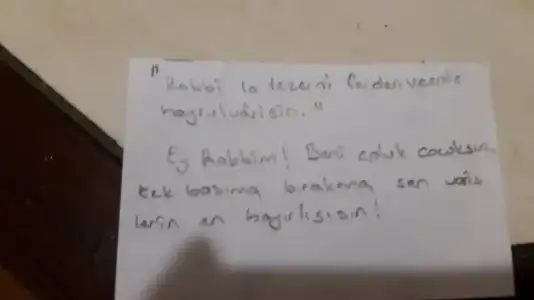 "Rabbi la tezerni ferden veente
hayrulvarisin."
Ey Rabbim! Beni çoluk cocuksuz
tek basıma bırakma sen varis
lerin en hayırlısısın!